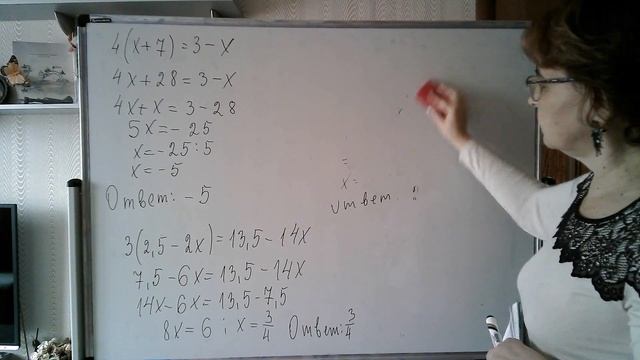 4(x+7)=3-x
4x+28=3-x
4x+x=3-28
5x=-25
x=-25:5
x=-5
Ответ: -5
3(2,5-2x)=13,5-14x
7,5-6x=13,5-14x
14x-6x=13,5-7,5
8x=6; x=3/4 Ответ: 3/4
=
x=